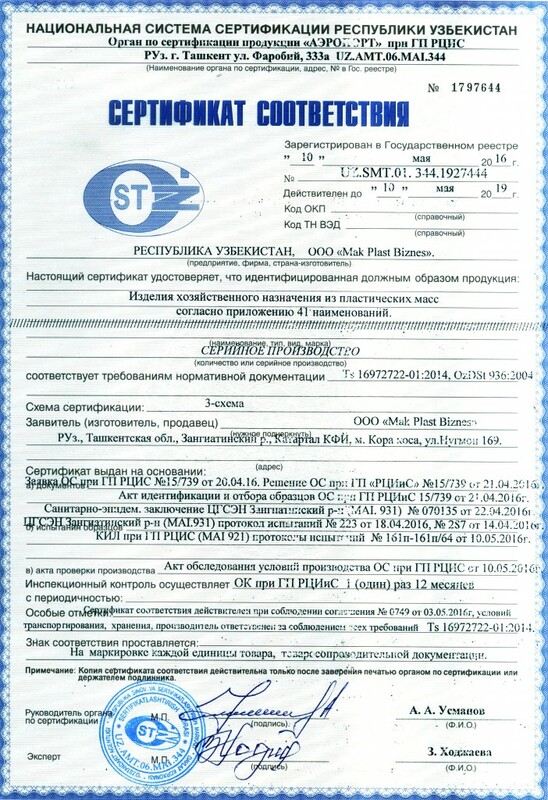 НАЦИОНАЛЬНАЯ СИСТЕМА СЕРТИФИКАЦИИ РЕСПУБЛИКИ УЗБЕКИСТАН
Орган по сертификации продукции «АЭРОПОРТ» при ГП РЦИС
РУз. г. Ташкент ул. Фаробий, 333а UZ.AMT.06.MAI.344
(Наименование органа по сертификации, адрес, № в Гос. реестре)
№ 1797644
СЕРТИФИКАТ СООТВЕТСТВИЯ
Зарегистрирован в Государственном реестре
" 10 " мая 2016 г.
№ UZ.SMT.01. 344.1927444
Действителен до " 10 " мая 2019 г.
Код ОКП
(справочный)
Код ТН ВЭД
(справочный)
ST
РЕСПУБЛИКА УЗБЕКИСТАН, ООО «Mak Plast Biznes».
(предприятие, фирма, страна-изготовитель)
Настоящий сертификат удостоверяет, что идентифицированная должным образом продукция:
Изделия хозяйственного назначения из пластических масс
согласно приложению 41 наименований.
(наименование, тип, вид, марка)
СЕРИЙНОЕ ПРОИЗВОДСТВО
(количество или серийное производство)
соответствует требованиям нормативной документации Ts 16972722-01:2014, OzDSt 936:2004
Схема сертификации: 3-схема
Заявитель (изготовитель, продавец) ООО «Mak Plast Biznes»
(нужное подчеркнуть)
РУз., Ташкентская обл., Зангиатинский р., Катартал КФЙ, м. Кора хоса, ул.Нугмон 169.
(адрес)
Сертификат выдан на основании:
Заявка ОС при ГП РЦИС №15/739 от 20.04.16. Решение ОС при ГП «РЦИиС» №15/739 от 21.04.2016г.
а) документов
Акт идентификации и отбора образцов ОС при ГП РЦИиС 15/739 от 21.04.2016г.
Санитарно-эпидем. заключение ЦГСЭН Зангиатинский р-н (MAI. 931) № 070135 от 22.04.2016г
ЦГСЭН Зангиатинский р-н (MAI.931) протокол испытаний № 223 от 18.04.2016, № 287 от 14.04.2016г
б) испытания образцов
КИЛ при ГП РЦИС (MAI 921) протоколы испытаний № 161п-161п/64 от 10.05.2016г.
в) акта проверки производства Акт обследования условий производства ОС при ГП РЦИС от 10.05.2016г
Инспекционный контроль осуществляет ОК при ГП РЦИиС 1 (один) раз 12 месяцев
с периодичностью:
Особые отметки: Сертификат соответствия действителен при соблюдении соглашения № 0749 от 03.05.2016г, условий
транспортирования, хранения, производитель ответственен за соблюдением всех требований Ts 16972722-01:2014.
Знак соответствия проставляется:
На маркировке каждой единицы товара, товаросопроводительной документации.
Примечание: Копия сертификата соответствия действительна только после заверения печатью органом по сертификации или
держателем подлинника.
Руководитель органа
по сертификации
М.П.
(подпись)
А. А. Усманов
(Ф.И.О.)
Эксперт
М.П.
(подпись)
З. Ходжаева
(Ф.И.О.)
ST
UZ.AMT.06.MAI.344